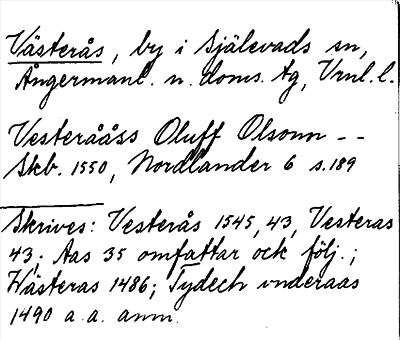 Västerås, by i Själevads sn,
Ångermanl. n. doms. tg, Vrnl. l.
Vesterååss Oluff Olsonn - -
Skb. 1550, Nordlander 6 s. 189
Skrives: Vesterås 1545, 43, Vesteras
43; Aas 35 omfattar ock följ.;
Wästeras 1486; Tydech vnderaas
1490 a. a. anm.